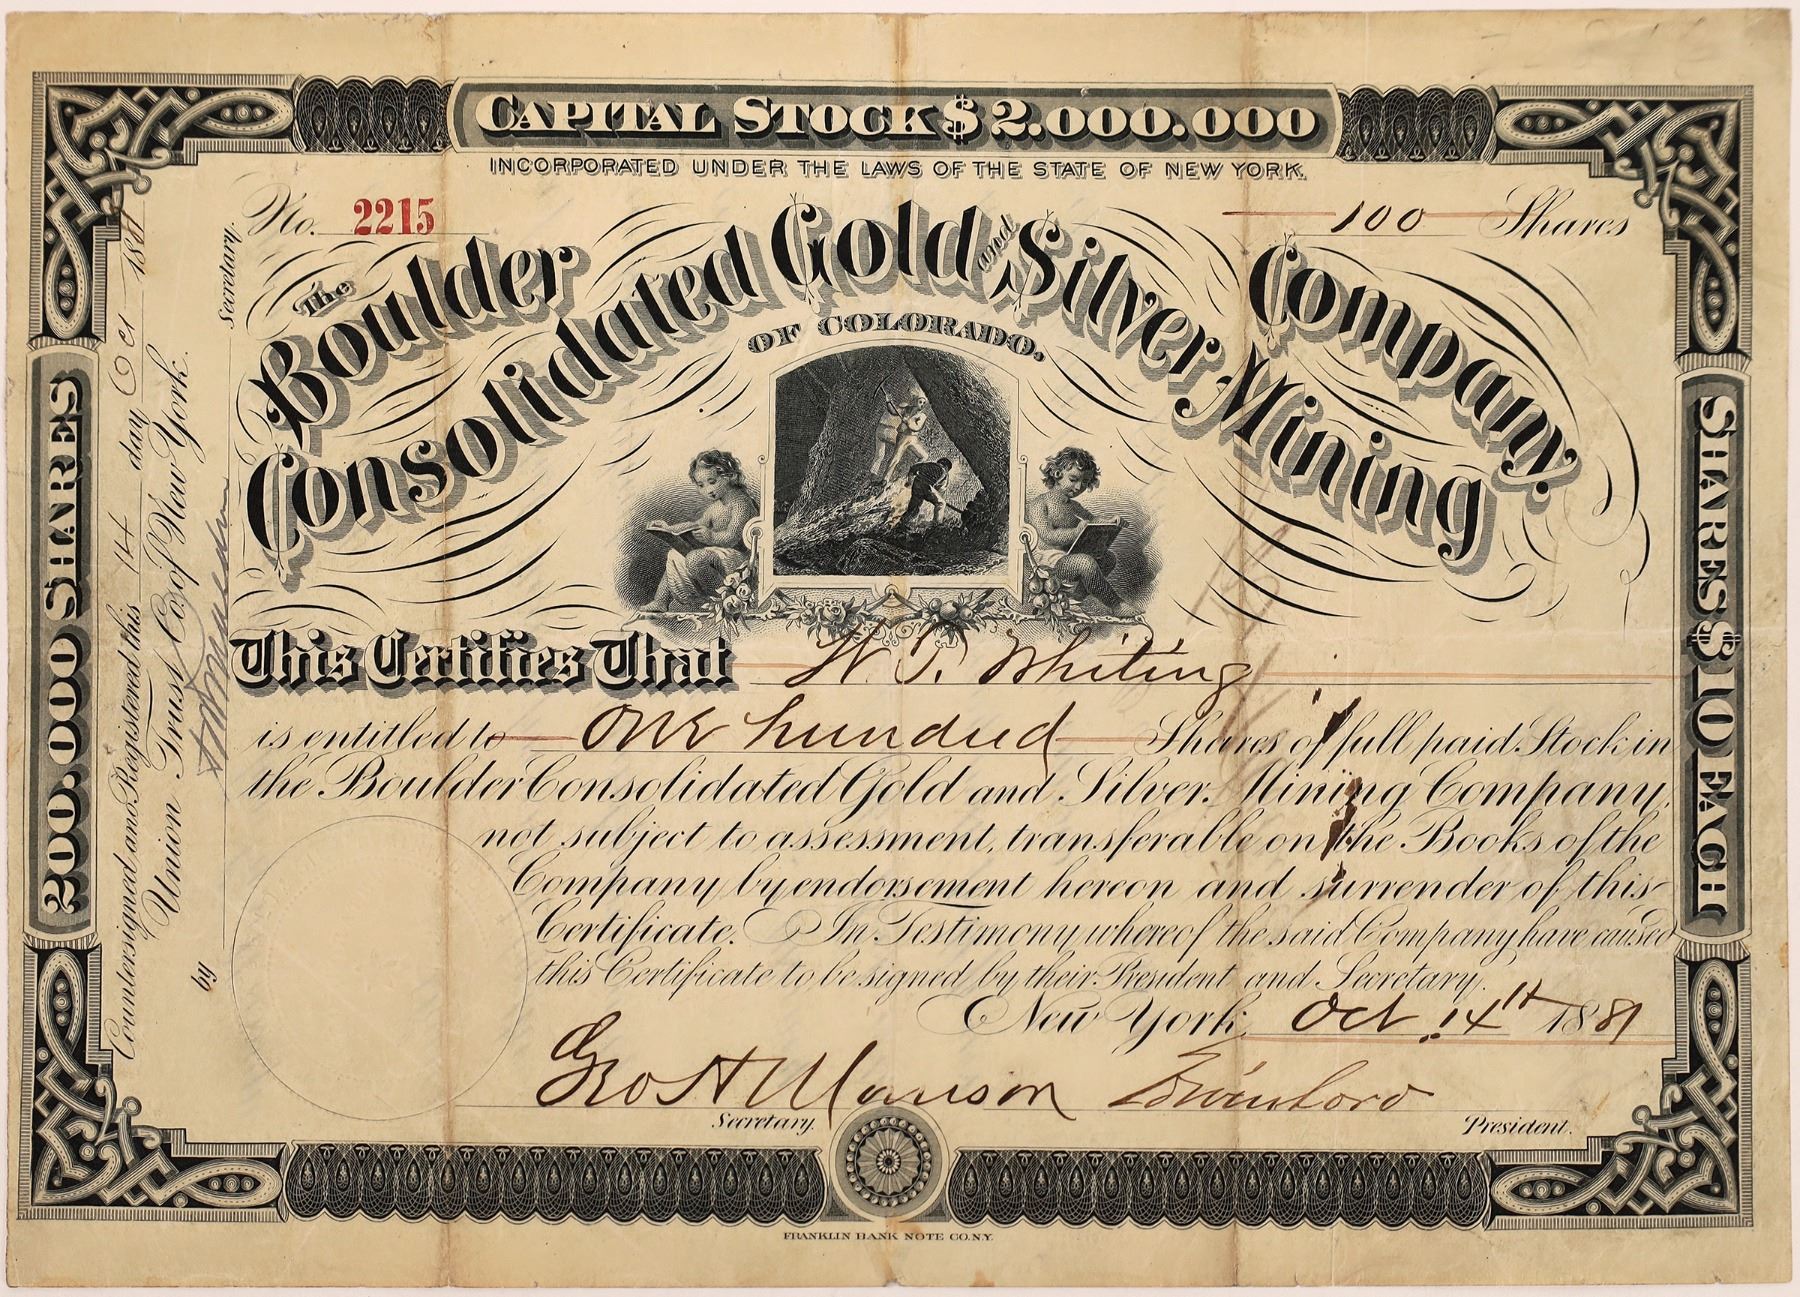 CAPITAL STOCK $2.000.000
INCORPORATED UNDER THE LAWS OF THE STATE OF NEW YORK.
No. 2215
100 Shares
The Boulder
Consolidated Gold and Silver Mining
Company.
OF COLORADO.
This Certifies That W. T. Whiting
is entitled to One hundred Shares of full paid Stock in
the Boulder Consolidated Gold and Silver Mining Company,
not subject to assessment, transferable on the Books of the
Company by endorsement hereon and surrender of this
Certificate. In Testimony whereof the said Company have caused
this Certificate to be signed by their President and Secretary.
New York, Oct. 14th 1881
Geo H
Secretary.
President.
FRANKLIN BANK NOTE CO. N.Y.
200.000 SHARES
SHARES $10 EACH
Countersigned and Registered this 14 day Oct 1881
Union Trust Co. of New York.
by
Secretary.